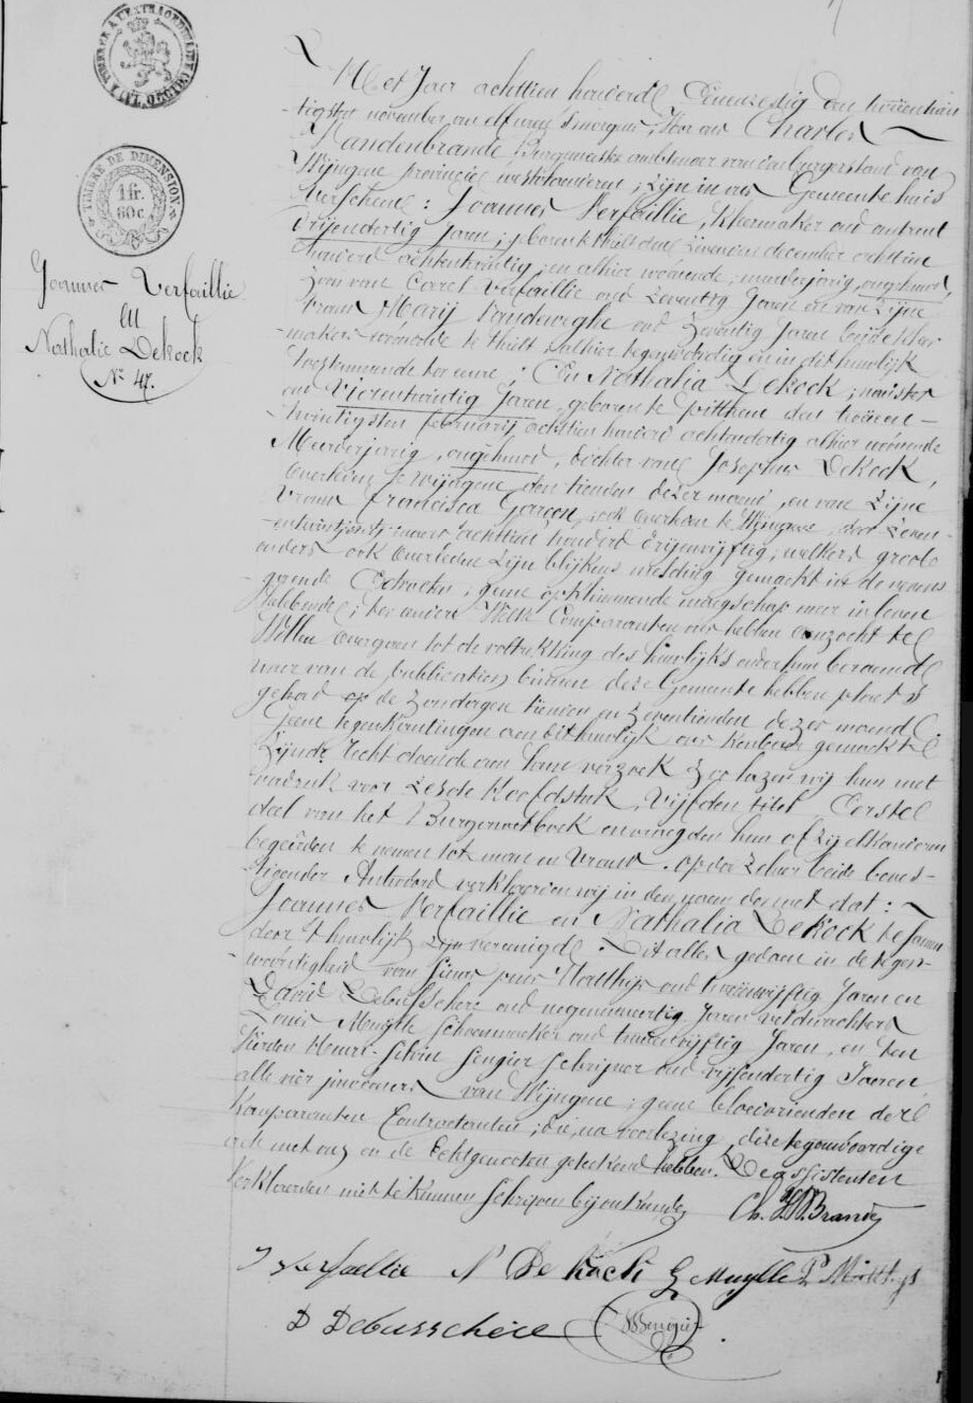 TIMBRE DE DIMENSION
1 fr.
60 c.
Joannes Verfaillie
en
Nathalie Dekock
N° 47.
Het Jaer achttien honderd Eenenzestig den tweeentwin-
tigsten november om elf uren s'morgens, Voor ons Charles
Vandenbrande, Burgemeester ambtenaer van den burgerstand van
Wijngene provincie westvlaenderen; zijn in ons Gemeentehuis
Verschenen: Joannes Verfaillie, kleermaker oud omtrent
Drijendertig Jaren; geboren te Thielt den zevensten december achttien
honderd achtentwintig, en alhier woonende, meerderjarig, ongehuwd,
Zoon van Carel Verfaillie oud zeventig Jaren en van Zijne
Vrouw Marij Vandeweghe oud Zeventig Jaren beijde kleer-
makers woonende te Thielt, alhier tegenwoordig en in dit huwelijk
toestemmende ter eene; En Nathalia Dekock,
oud Vierentwintig Jaren, geboren te Pitthem den tweeen-
twintigsten februarij achttien honderd alhier woonende
Meerderjarig, ongehuwd, dochter van Josephus Dekock,
overleden te wijngene den tienden dezer maend, en van Zijne
Vrouw Francisca ook overleden te Wijngene, den Zeven-
entwintigsten achttien honderd drijenvijftig, welkers groote
ouders ook overleden zijn blijkens melding gemaekt in de nevens
gaende geene opklimmende maegschap meer in leven
hebbende; ter andere Welke Comparanten ons hebben aenzocht te
Willen overgaen tot de voltrekking des huwelijks onder hun beraemd
waer van de publicatien binnen deze Gemeente hebben plaets
gehad op de Zondagen tienden en Zeventienden dezer maend.
Geene tegenkantingen aen dit huwelijk ons kenbaer gemaekt
Zijnde, recht doende aen hun verzoek Zoo lazen wij hun met
nadruk voor Zesde Hoofdstuk, Vijfden titel Eerste
deel van het Burgerwetboek en vroegden hun of zij elkanderen
begeerden te nemen tot man en Vrouw. op der Zelver beide beves-
tigender Antwoord verklaerden wij in den naem der wet dat:
Joannes Verfaillie en Nathalia Dekock te samen
door 't huwelijk zijn vereenigd. Dit alles gedaen in de tegen-
woordigheid van Matthijs oud tweeenvijftig Jaren en
David Debusschere oud negenenveertig Jaren veldwachters
Louis Muylle schoenmaeker oud tweeenvijftig Jaren, en ten
Vierden Henri Schrijver oud vijfendertig Jaren
alle vier inwooners van Wijngene; geene bloedvrienden dezer
Komparanten Contractanten; die, na voorlezing, deze tegenwoordige
acte met ons en de Echtgenooten geteekend hebben. De assistenten
Verklaerden niet te kunnen Schrijven bij onkunde
Ch. VBrande
J Verfaellie N De kock L Muylle P Mattijs
D Debusschere